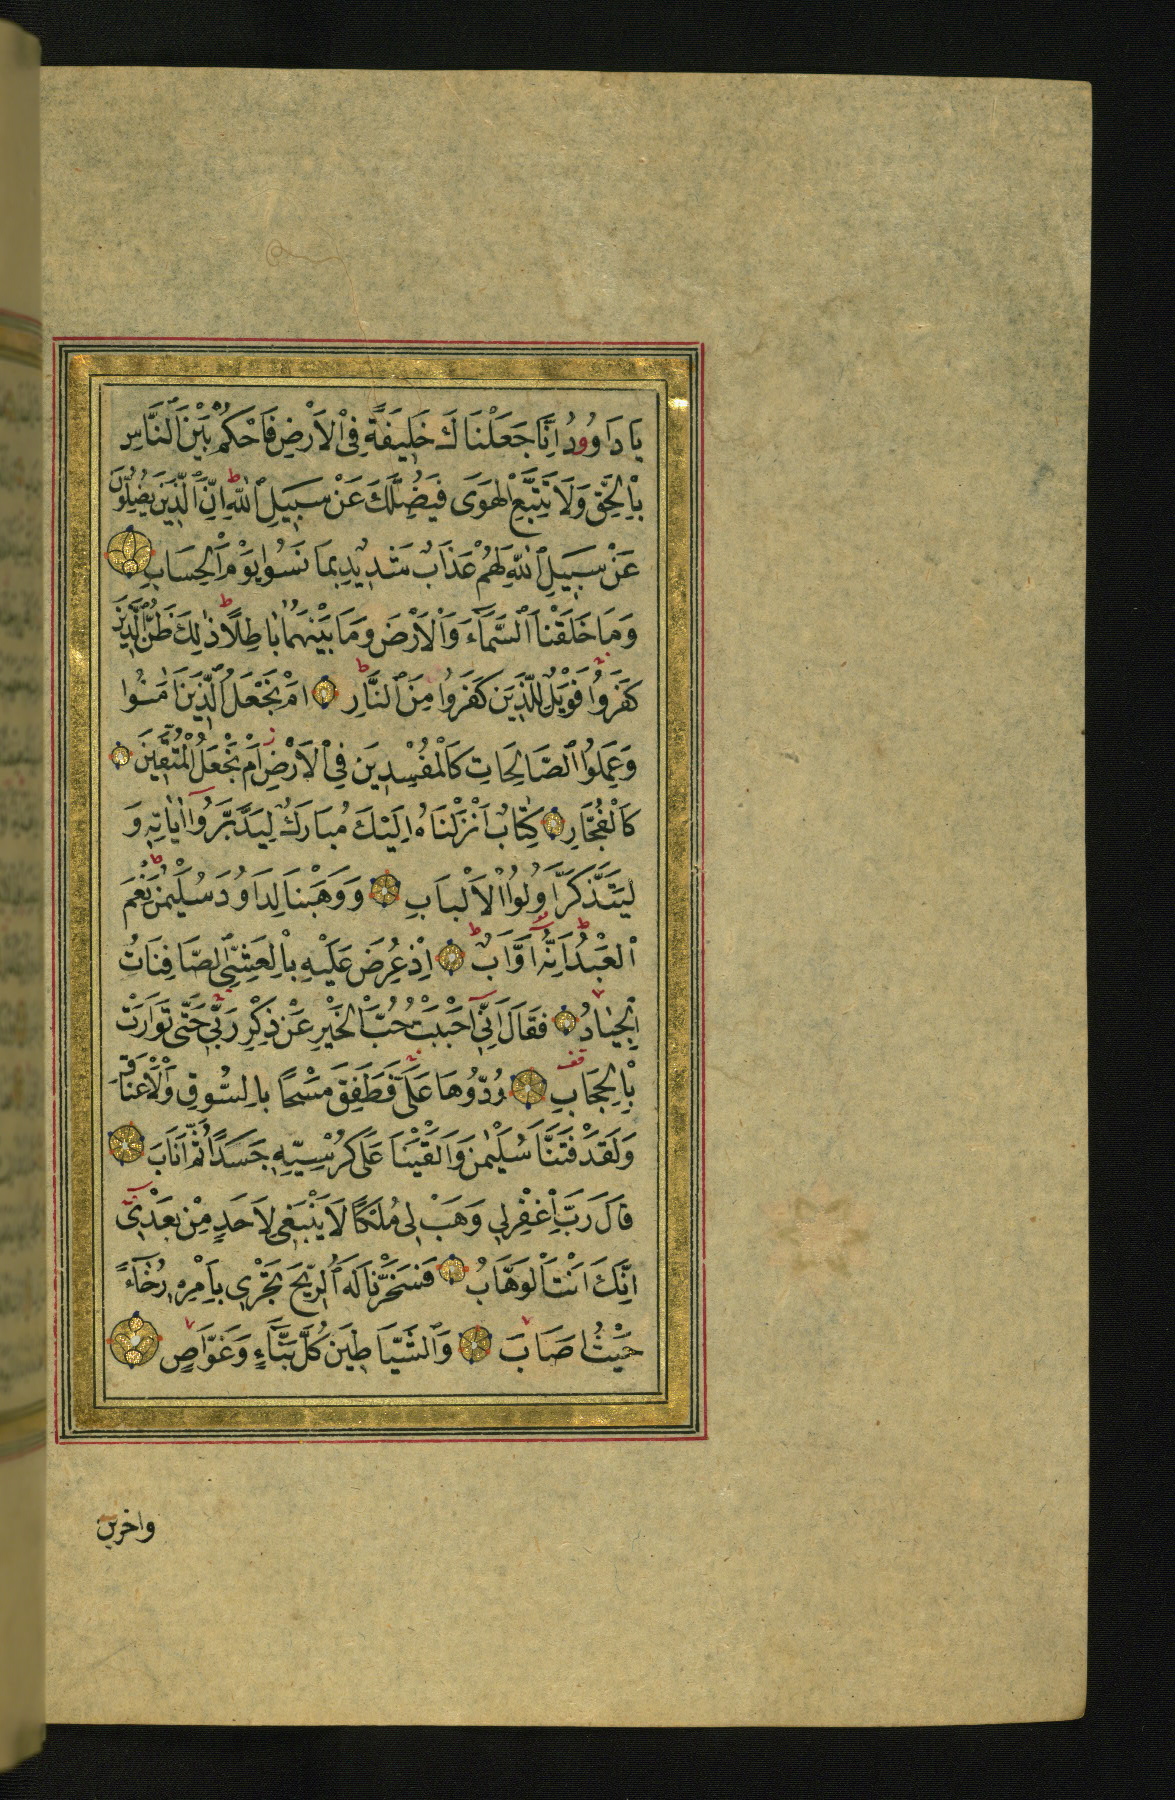 يَا دَاوُودُ اِنَّا جَعَلْنَاكَ خَلِيفَةً فِى الْاَرْضِ فَاحْكُمْ بَيْنَ النَّاسِ
بِالْحَقِّ وَلَا تَتَّبِعِ الْهَوَى فَيُضِلَّكَ عَنْ سَبِيلِ اللّٰهِ اِنَّ الَّذِينَ يَضِلُّونَ
عَنْ سَبِيلِ اللّٰهِ لَهُمْ عَذَابٌ شَدِيدٌ بِمَا نَسُوا يَوْمَ الْحِسَابِ
وَمَا خَلَقْنَا السَّمَاءَ وَالْاَرْضَ وَمَا بَيْنَهُمَا بَاطِلًا ذٰلِكَ ظَنُّ الَّذِينَ
كَفَرُوا فَوَيْلٌ لِلَّذِينَ كَفَرُوا مِنَ النَّارِ اَمْ نَجْعَلُ الَّذِينَ اٰمَنُوا
وَعَمِلُوا الصَّالِحَاتِ كَالْمُفْسِدِينَ فِى الْاَرْضِ اَمْ نَجْعَلُ الْمُتَّقِينَ
كَالْفُجَّارِ كِتَابٌ اَنْزَلْنَاهُ اِلَيْكَ مُبَارَكٌ لِيَدَّبَّرُوا اٰيَاتِهِ وَ
لِيَتَذَكَّرَ اُولُوا الْاَلْبَابِ وَوَهَبْنَا لِدَاوُدَ سُلَيْمٰنَ نِعْمَ
الْعَبْدُ اِنَّهُ اَوَّابٌ اِذْ عُرِضَ عَلَيْهِ بِالْعَشِيِّ الصَّافِنَاتُ
الْجِيَادُ فَقَالَ اِنِّى اَحْبَبْتُ حُبَّ الْخَيْرِ عَنْ ذِكْرِ رَبِّى حَتَّى تَوَارَتْ
بِالْحِجَابِ رُدُّوهَا عَلَيَّ فَطَفِقَ مَسْحًا بِالسُّوقِ وَالْاَعْنَاقِ
وَلَقَدْ فَتَنَّا سُلَيْمٰنَ وَاَلْقَيْنَا عَلَى كُرْسِيِّهِ جَسَدًا ثُمَّ اَنَابَ
قَالَ رَبِّ اغْفِرْ لِى وَهَبْ لِى مُلْكًا لَا يَنْبَغِى لِاَحَدٍ مِنْ بَعْدِى
اِنَّكَ اَنْتَ الْوَهَّابُ فَسَخَّرْنَا لَهُ الرِّيحَ تَجْرِى بِاَمْرِهِ رُخَاءً
حَيْثُ اَصَابَ وَالشَّيَاطِينَ كُلَّ بَنَّاءٍ وَغَوَّاصٍ
واخرين